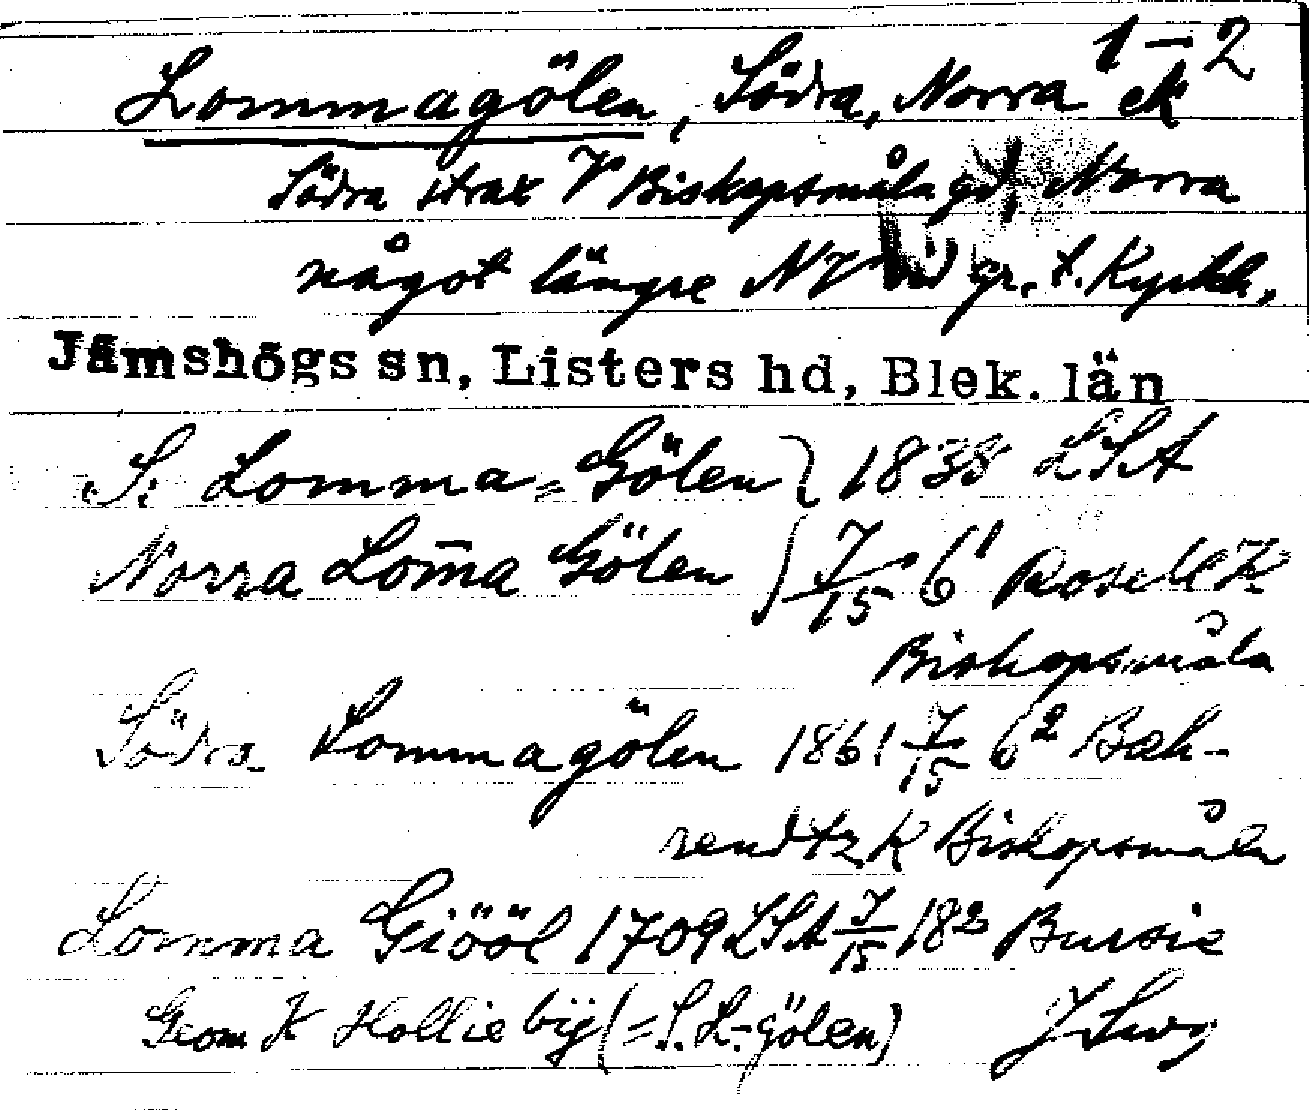 1–2
Lommagölen, Södra, Norra ek
Södra strax V Biskopsmåla gd, Norra
något längre NV vid gr. t. Kyrkh,
Jämshögs sn, Listers hd, Blek. län
S. Lomma=Gölen } 1838 LSA
Norra Lom̄a Gölen } J/15 6¹ Rosell K
Biskopsmåla
Södra Lommagölen 1861 J/15 6² Beh-
rendtz K Biskopsmåla
Lomma Giööl 1709 LSA J/15 18² Bursie
Geom K Hollie bÿ (=S. L-gölen)